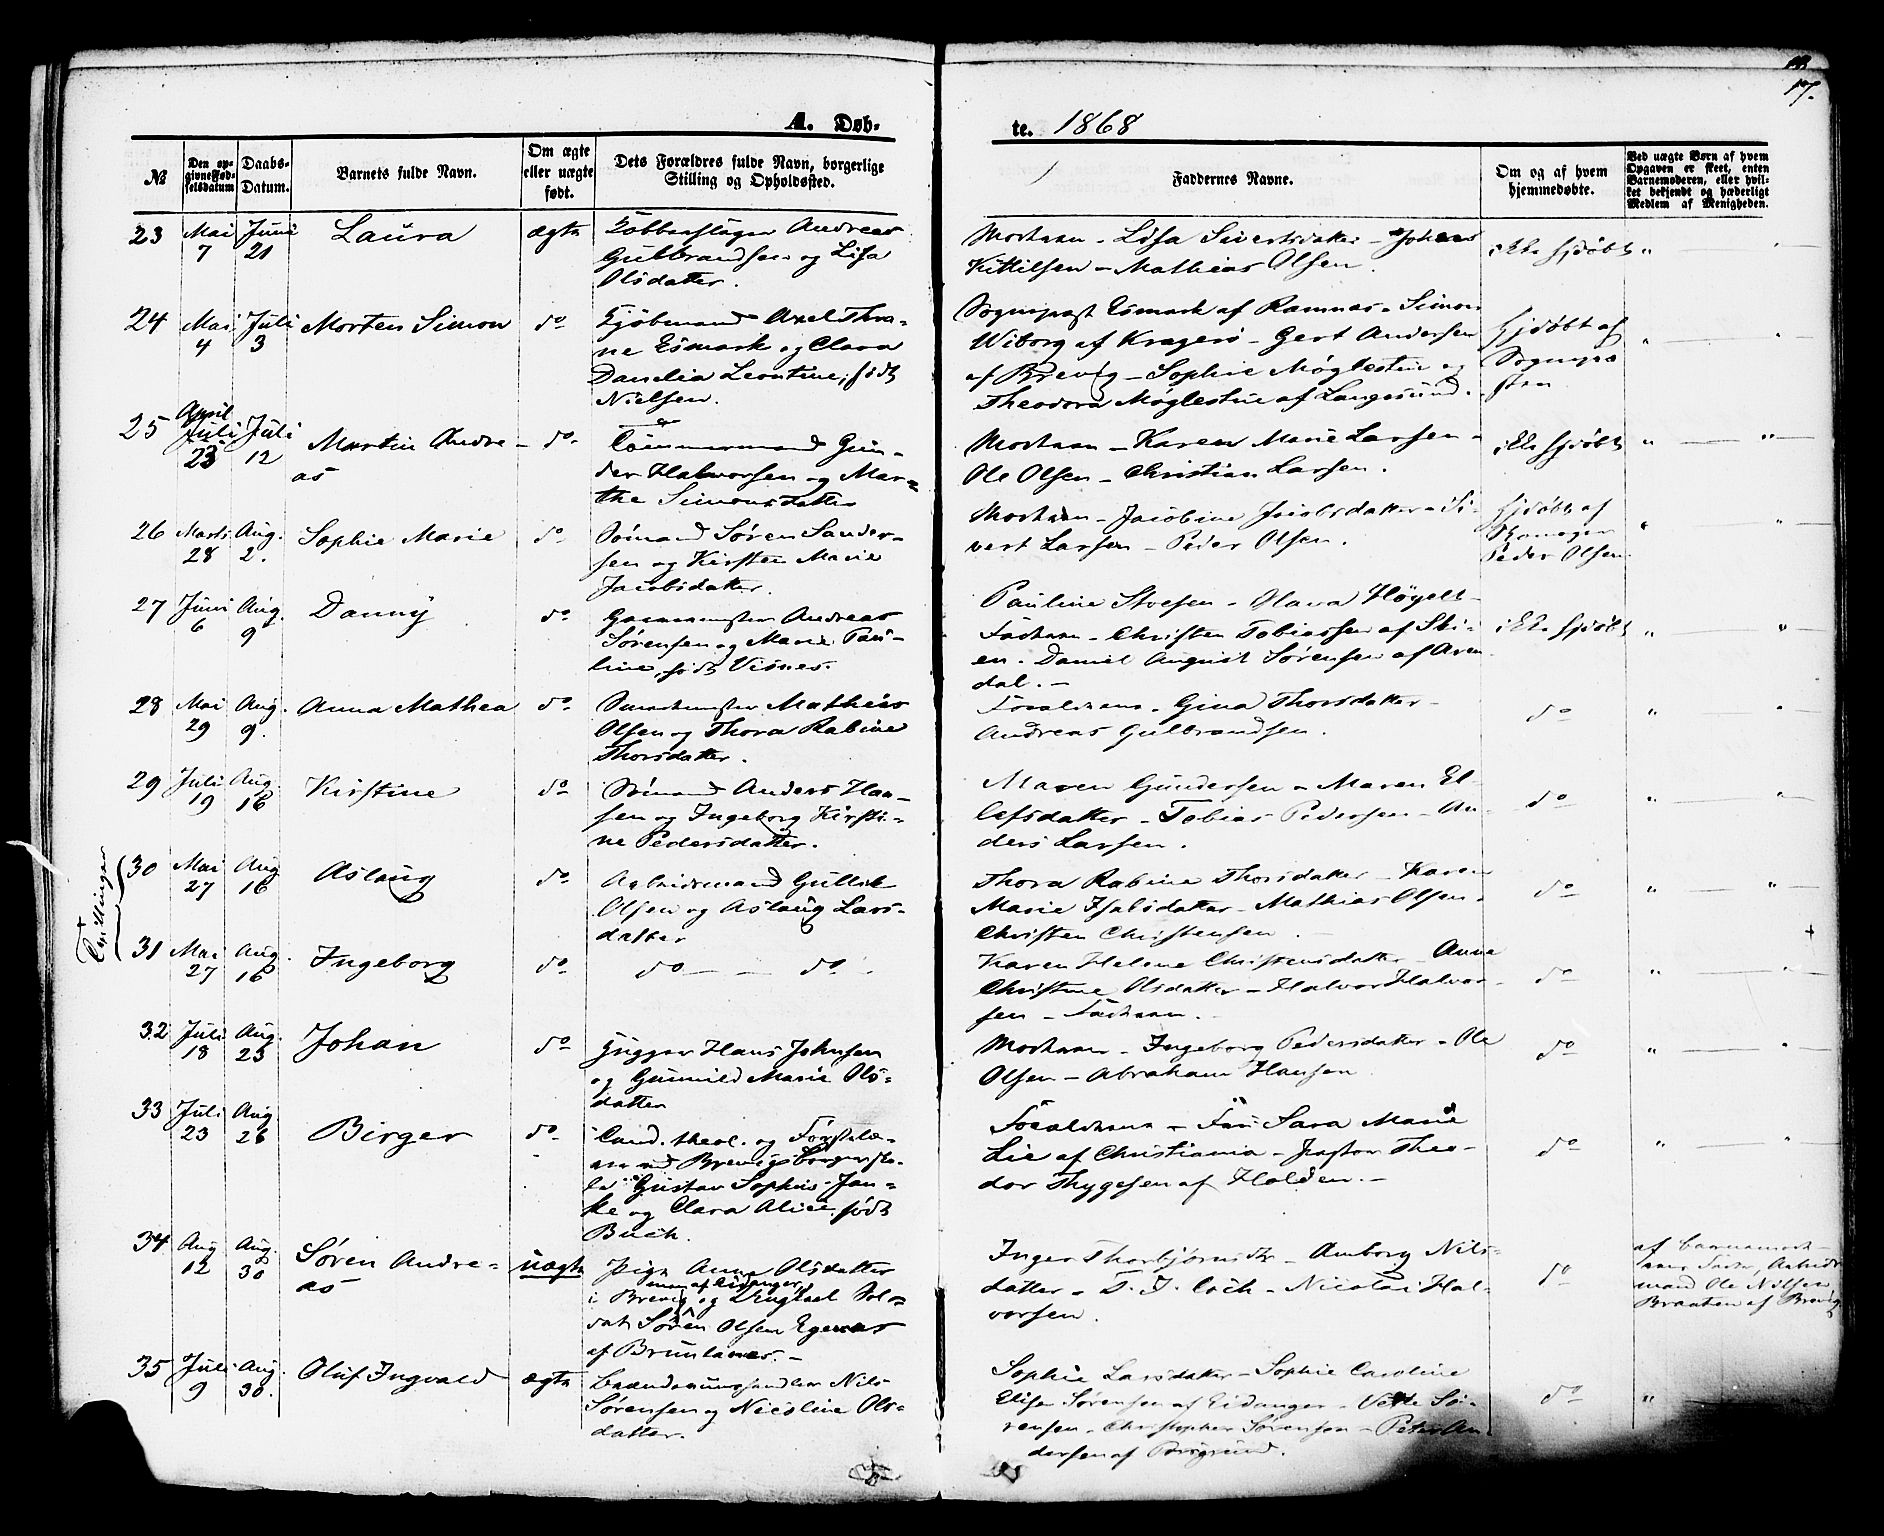 17.
A. Døb-
te. 1868
№
Den op-
givne Fød-
selsdatum
Daabs-
Datum.
Barnets fulde Navn.
Om ægte
eller uægte
født.
Dets Forældres fulde Navn, borgerlige
Stilling og Opholdssted.
Faddernes Navne.
Om og af hvem
hjemmedøbte.
Ved uægte Børn af hvem
Opgaven er skeet, enten
Barnemoderen, eller hvil-
ket bekjendt og hæderligt
Medlem af Menigheden.
23 Mai 7 Juni 21 Laura ægte
Kobberslager Andreas
Gulbrandsen og Lisa
Olsdatter.
Moderen - Lisa Sivertsdatter - Johan
Kittilsen - Mathias Olsen.
ikke hjdøbt
24 Mai 4 Juli 3 Morten Simon do
Kjøbmand Axel Thra-
ne Esmark og Clara
Leontine, født
Nielsen.
Sognepræst Esmark af Ramnæs - Simon
Wiborg af Kragerø - Gert Andersen
af Brevig - Sophie Møglestue og
Theodora Møglestue af Langesund.
Hjdøbt af
Sognepræ
sten
25 April Juli 23 Juli 12 Martin Andre-
as do
Tømmermand Gun-
der Halvorsen og Mar-
the Simonsdatter
Moderen - Karen Marie Larsen -
Ole Olsen - Christian Larsen.
ikke hjdøbt
26 Marts 28 Aug. 2. Sophie Marie do
Sømand Søren Sander-
sen og Kirsten Marie
Jacobsdatter.
Moderen - Jacobine Jacobsdatter - Si-
vert Larsen - Peder Olsen.
Hjdøbt af
Peder Olsen
27 Juni 6 Aug. 9 Danny do
Andreas
Sørensen og Marie Pau-
line, født Visnes.
Pauline Stoesen - Hava Høyelt -
Faderen - Christen Tobiassen af Ski-
en - Daniel August Sørensen af Aren-
dal. -
ikke hjdøbt
28 Mai 29 Aug. 9. Anna Mathea do
Smedmester Mathias
Olsen og Thora Rabine
Thorsdatter.
Forældrene - Gina Thorsdatter -
Andreas Gulbrandsen.
do
29 Juli 19 Aug. 16 Kirstine do
Sømand Anders Han-
sen og Ingeborg Kirsti-
ne Pedersdatter.
Maren Gundersen - Maren El-
lefsdatter - Tobias Pedersen - An-
ders Larsen.
do
Tvillinger
30 Mai 27 Aug 16 Aslaug do
Arbeidsmand Gullik
Olsen og Aslaug Lars-
datter
Thora Rabine Thorsdatter - Karen
Marie Isaksdatter - Mathias Olsen -
Christen Christensen.
do
31 Mai 27 Aug. 16 Ingeborg do
do - - do
Karen Helene Christensdatter - Anne
Christine Olsdatter - Halvor Halvor-
sen - Faderen.
do
32 Juli 18 Aug. 23 Johan do
Hans Johnsen
og Gunnild Marie Ols-
datter
Moderen - Ingeborg Pedersdatter - Ole
Olsen - Abraham Hansen
do
33 Juli 23 Aug. 26 Birger do
Cand. theol. og Førstelæ-
rer ved Brevigs Borgersko-
le Gustav Sophus Jan-
ke og Clara Alice, født
Buch.
Forældrene - Fru Sara Marie
Lie af Christiania - Pastor Theo-
dor Thygesen af Holden. -
do
34 Aug 12 Aug. 30 Søren Andre-
as uægte
Pige Anne Olsdatter
i Brevig og Ungkarl Sol-
dat Søren Olsen Egenæs
af Brunlanes. -
Inger Thorbjørnsdtr - Amborg Nils-
datter - T. J. Coch - Nicolai Hal-
vorsen.
do
af Barnemode-
rens Fader, Arbeids-
mand Ole Nilsen
Braaten af Brevig
35 Juli 9 Aug. 30. Oluf Ingvald ægte
Brændeviinshandler Nils
Sørensen og Nicoline Ols-
datter.
Sophie Larsdatter - Sophie Caroline
Elise Sørensen af Eidanger - Sø-
rensen - Christopher Sørensen - Peter An-
dersen af Porsgrund.
do